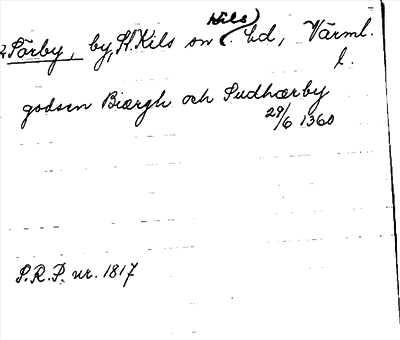 Sörby, by, St. Kils sn (Kils). hd, Värml.
l.
godsen Biærgh och Sudhærby
29/6 1360
S.R.P. nr. 1817